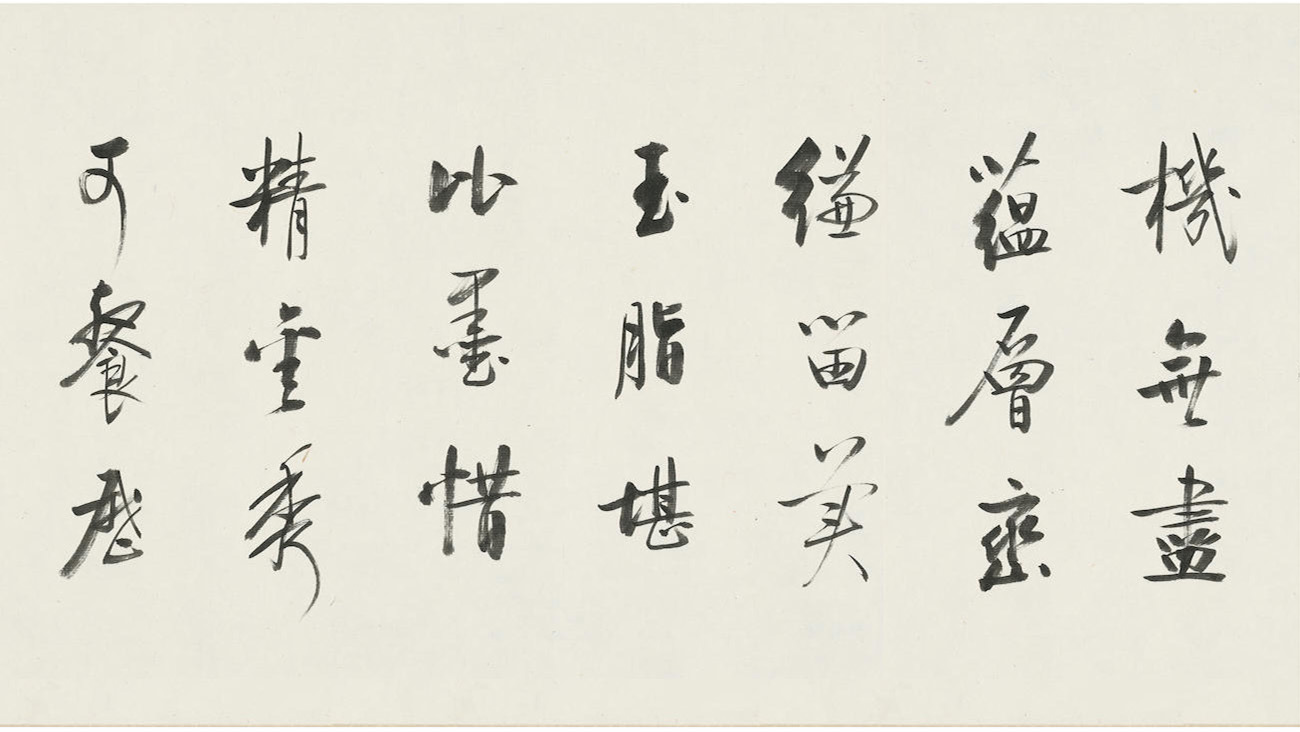 機無盡
蘊層巒
縑留美
玉脂堪
比墨惜
精雲秀
可餐歷